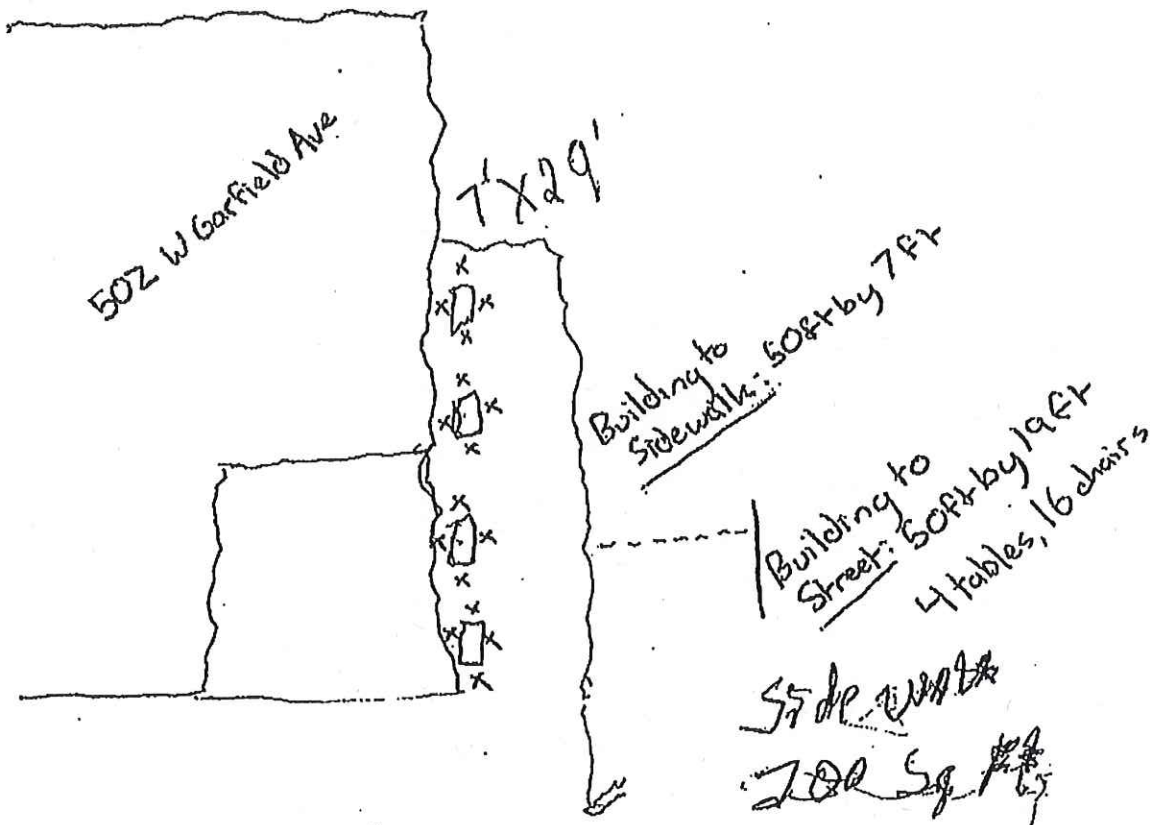 502 W Garfield Ave
7' X 29'
Building to
Sidewalk: 50ft by 7ft
Building to
Street: 50ft by 19ft
4 tables, 16 chairs
Side walk
200 Sq